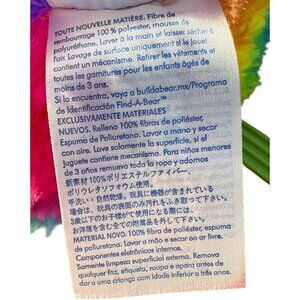 TOUTE NOUVELLE MATIÈRE. Fibre de
rembourrage 100 % polyester, mousse de
polyuréthane. Laver à la main et laisser sécher à
l'air. Lavage de surface uniquement si le jouet
contient un mécanisme. Retirer les vêtements et
toutes les garnitures pour les enfants âgés de
moins de 3 ans.
Si lo encuentra, vaya a buildabear.mx/Programa
de Identificación Find-A-Bear™
EXCLUSIVAMENTE MATERIALES
NUEVOS. Relleno 100% fibras de poliéster,
Espuma de Poliuretano. Lavar a mano y secar
con aire. Lave solamente la superficie si el
juguete contiene mecanismo. Para niños menores
de 3 años remueva toda la ropa y adornos
新素材100%ポリエステルファイバー、
ポリウレタンフォウム使用。
手洗い、自然乾燥。機械が含まれている
場合は、玩具の表面のみ汚れをふいてください。
3歳以下のお子様がで使用になる際は、
お洋服を含む全ての附属品を外して下さい。
MATERIAL NOVO. 100% fibra de poliéster, espuma
de poliuretano. Lavar à mão e secar ao ar livre.
Componentes eletrônicos internos.
Somente limpeza superficial externa. Remova
qualquer fita, etiqueta, roupa e apara antes de
dar a uma criança com idade inferior a três anos.